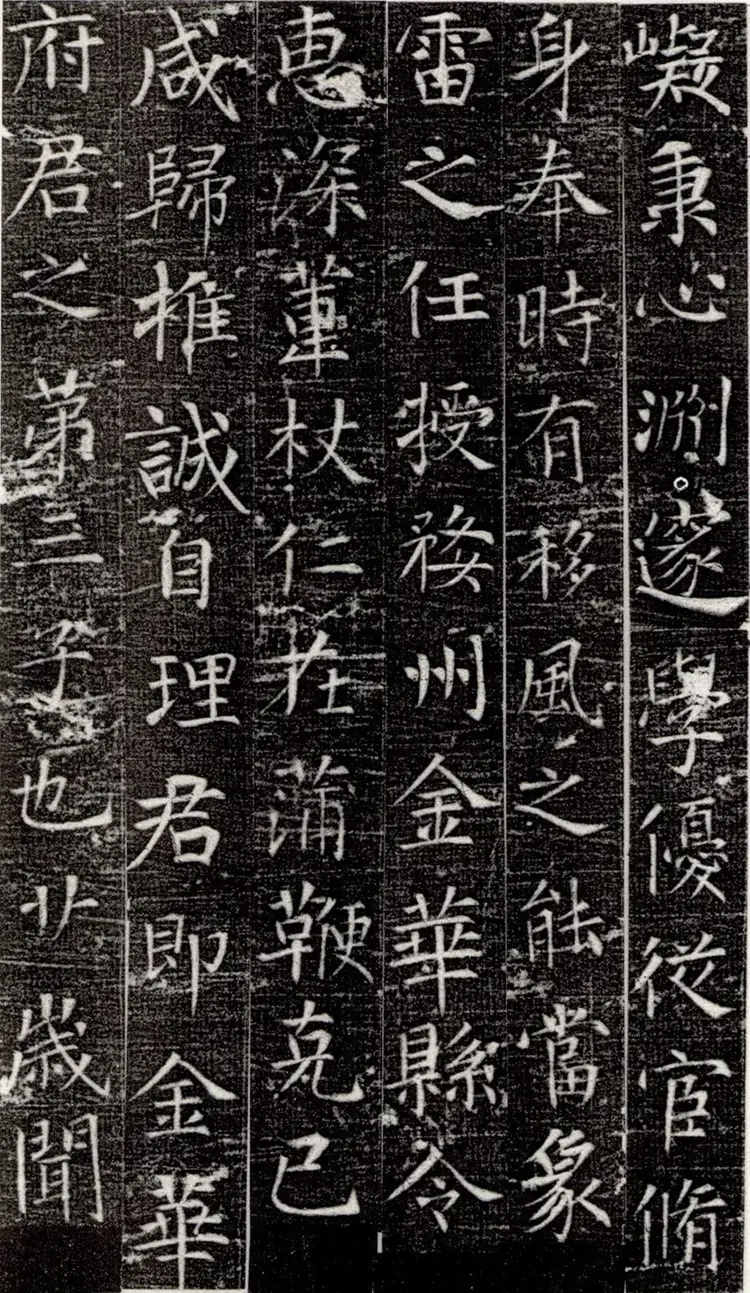 嶷秉心淵邃學優從宦脩
身奉時有移風之能當象
雷之任授婺州金華縣令
惠深董杖仁在蒲鞭克已
咸歸推誠自理君即金華
府君之苐三子也廿歲聞